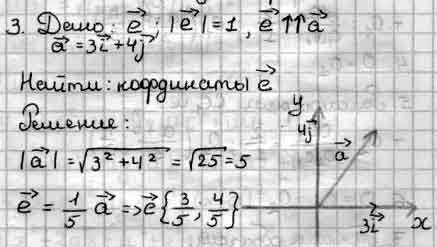 3. Дано: e⃗; |e⃗|=1, e⃗ ↑↑ a⃗
a⃗ = 3i⃗ + 4j⃗
Найти: координаты e⃗
Решение:
|a⃗| = √(3² + 4²) = √25 = 5
e⃗ = 1/5 a⃗ => e⃗ {3/5; 4/5}
y
4j⃗
a⃗
3i⃗
x